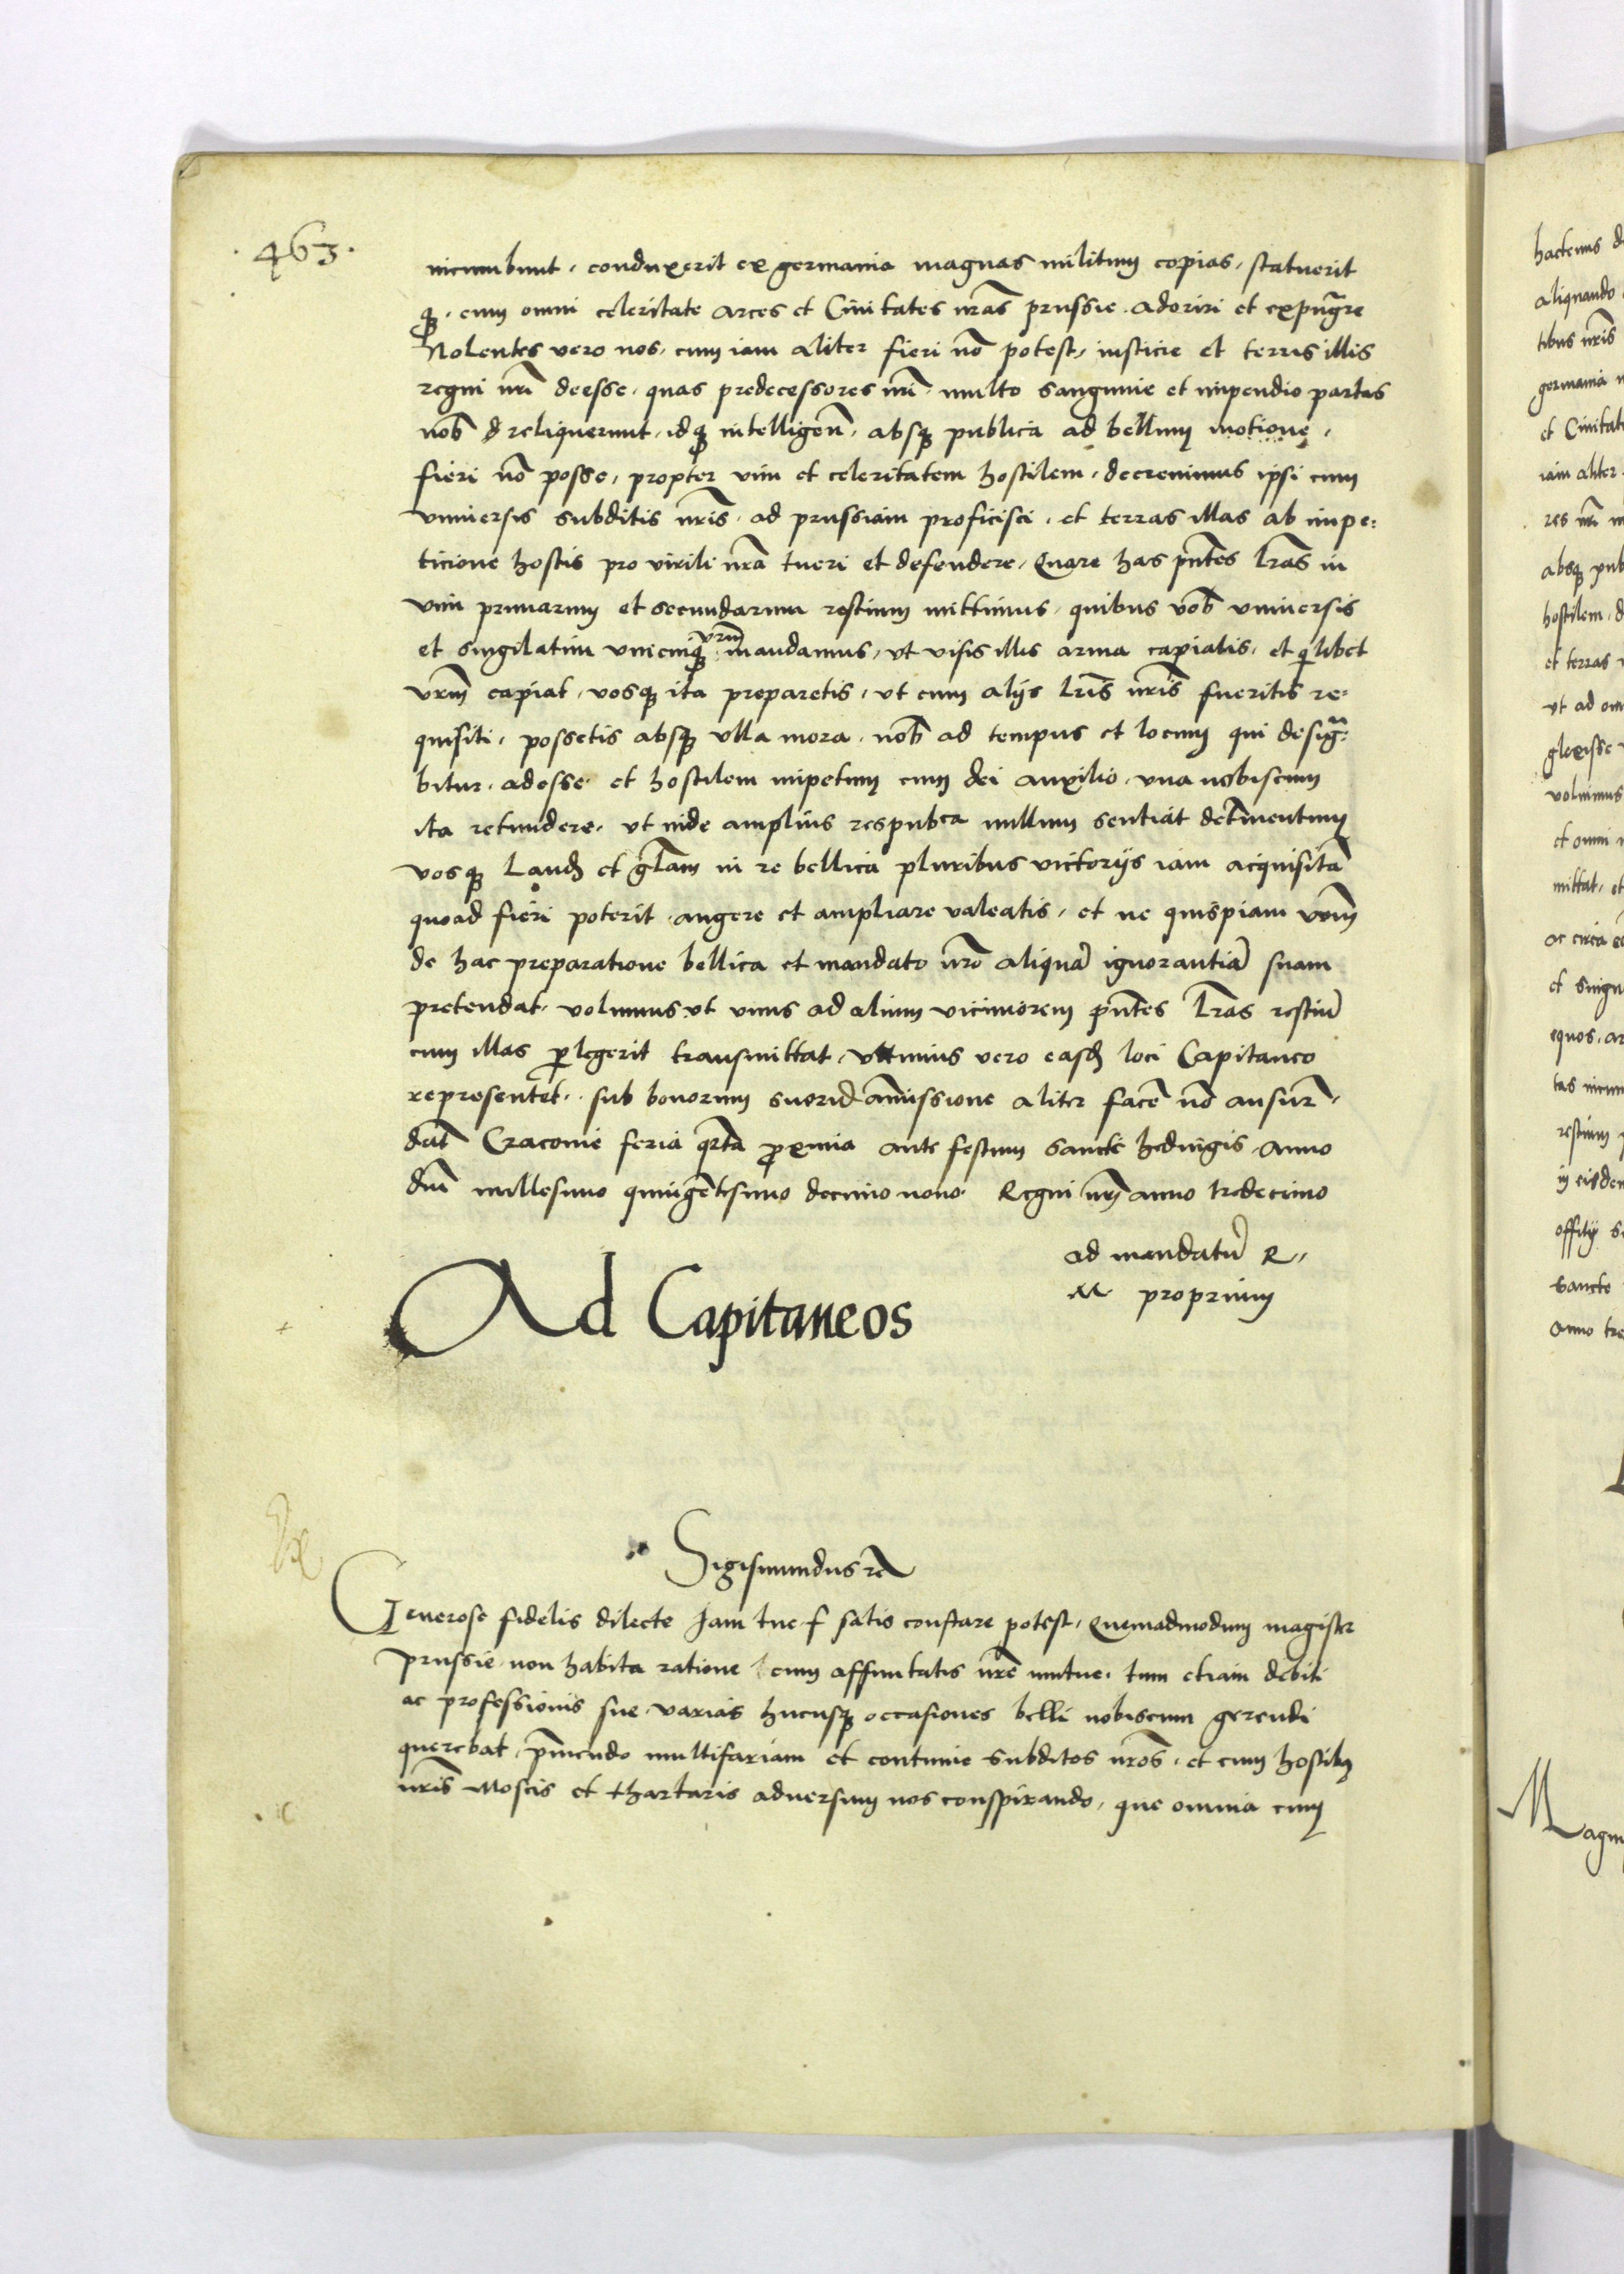 . 463 .
incumbunt, conduxerit ex germania magnas militum copias, statuerit
qz, cum omni celeritate arces et Civitates nras prussie adoriri et expugre
Nolentes vero nos, cum iam aliter fieri no potest, iusticie et terris illis
regni nri deesse, quas predecessores nri multo sanguine et impendio partas
nob d reliquerunt, idqz intelligen, absqz publica ad bellum motione,
fieri no posse, propter vim et celeritatem hostilem, decrevimus ipsi cum
universis subditis nris ad prussiam proficisci, et terras illas ab impe:
ticione hostis pro virili nra tueri et defendere, Quare has pntes lras in
vim primarum et secundarum restium mittimus, quibus vob universis
et singilatim unicuiqz vrum mandamus, vt visis illis arma capiatis, et quilibet
vrum capiat, vosqz ita preparetis, vt cum alijs lris nris fueritis re:
quisiti, possetis absqz vlla mora, nob ad tempus et locum qui desig:
bitur, adesse, et hostilem impetum cum dei auxilio, vna nobiscum
ita retundere, vt inde amplius respubca nullum sentiat detrimentum
vosqz laud et glam in re bellica pluribus victorijs iam acquisita
quoad fieri poterit, augere et ampliare valeatis, et ne quispiam vrum
de hac preparatione bellica et mandato nro aliqua ignorantia suam
pretendat, volumus vt vnus ad alium viciniorem pntes lras restiu
cum illas perlegerit transmittat, vltimus vero easd loci Capitaneo
representet, sub bonorum suorum amissione aliter face no ansur,
dat Cracovie feria qrta proxima ante festum sancte hedvigis Anno
dni millesimo quingentesimo decimo nono Regni nri anno tredecimo
ad mandatu R
M proprium
Ad Capitaneos
Sigismundus re
Generose fidelis dilecte Jam tue f satis constare potest, Quemadmodum magister
prussie non habita ratione cum affinitatis nre mutue, tum etiam debiti
ac professionis sue, varias hucusqz occasiones belli nobiscum gerendi
querebat, pmendo multifariam et continue subditos nros, et cum hostibz
nris Moscis et thartaris adversum nos conspirando, que omnia cum
hactenus
aliquando
tibus nris
germania
et Civitat
iam aliter
res nri
absqz pub
hostilem, d
et terras
vt ad om
glexisse
volumus
et omni
mittat, et
ac circa
et singu
equos, ar
tas incum
restium
in eisdem
offitij
sancte
Anno tre
Magn